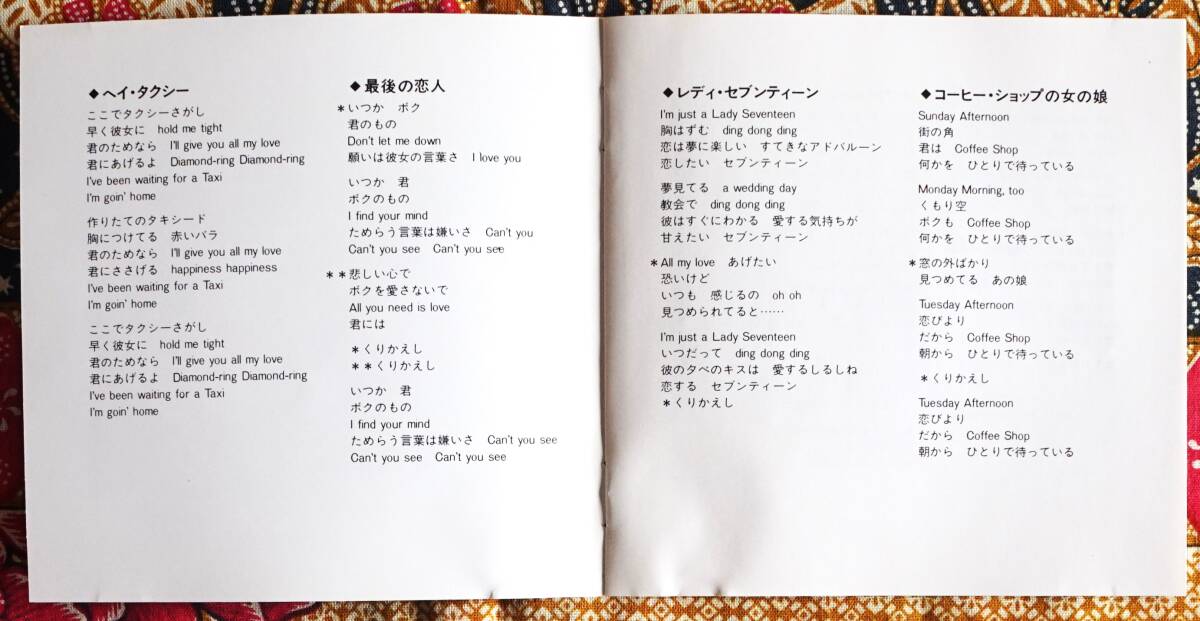 ◆ヘイ・タクシー
ここでタクシーさがし
早く彼女に　hold me tight
君のためなら　I'll give you all my love
君にあげるよ　Diamond-ring Diamond-ring
I've been waiting for a Taxi
I'm goin' home
作りたてのタキシード
胸につけてる　赤いバラ
君のためなら　I'll give you all my love
君にささげる　happiness happiness
I've been waiting for a Taxi
I'm goin' home
ここでタクシーさがし
早く彼女に　hold me tight
君のためなら　I'll give you all my love
君にあげるよ　Diamond-ring Diamond-ring
I've been waiting for a Taxi
I'm goin' home
◆最後の恋人
＊いつか　ボク
君のもの
Don't let me down
願いは彼女の言葉さ　I love you
いつか　君
ボクのもの
I find your mind
ためらう言葉は嫌いさ　Can't you
Can't you see　Can't you see
＊＊悲しい心で
ボクを愛さないで
All you need is love
君には
＊くりかえし
＊＊くりかえし
いつか　君
ボクのもの
I find your mind
ためらう言葉は嫌いさ　Can't you see
Can't you see　Can't you see
◆レディ・セブンティーン
I'm just a Lady Seventeen
胸はずむ　ding dong ding
恋は夢に楽しい　すてきなアドバルーン
恋したい　セブンティーン
夢見てる　a wedding day
教会で　ding dong ding
彼はすぐにわかる　愛する気持ちが
甘えたい　セブンティーン
＊All my love　あげたい
恐いけど
いつも　感じるの　oh oh
見つめられてると……
I'm just a Lady Seventeen
いつだって　ding dong ding
彼の夕べのキスは　愛するしるしね
恋する　セブンティーン
＊くりかえし
◆コーヒー・ショップの女の娘
Sunday Afternoon
街の角
君は　Coffee Shop
何かを　ひとりで待っている
Monday Morning, too
くもり空
ボクも　Coffee Shop
何かを　ひとりで待っている
＊窓の外ばかり
見つめてる　あの娘
Tuesday Afternoon
恋びより
だから　Coffee Shop
朝から　ひとりで待っている
＊くりかえし
Tuesday Afternoon
恋びより
だから　Coffee Shop
朝から　ひとりで待っている